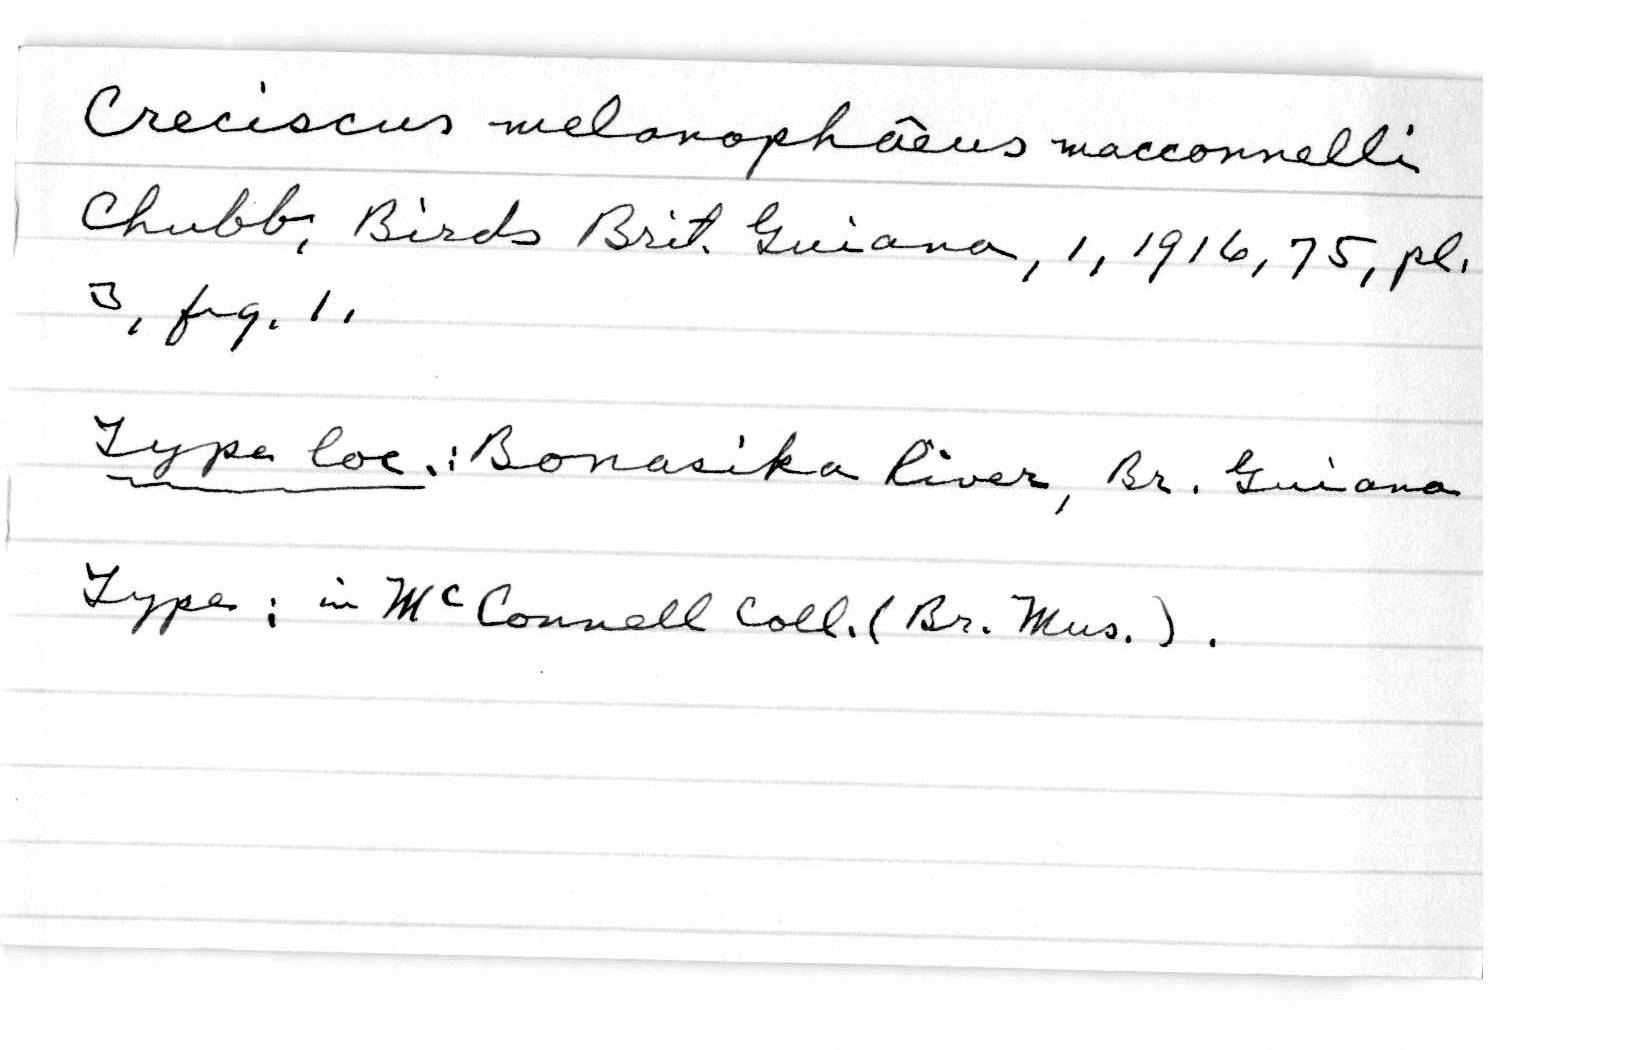 Creciscus melanophāeus macconnelli
Chubb, Birds Brit. Guiana, 1, 1916, 75, pl.
3, fig. 1.
Type loc.: Bonasika River, Br. Guiana
Type: in McConnell Coll. (Br. Mus.).